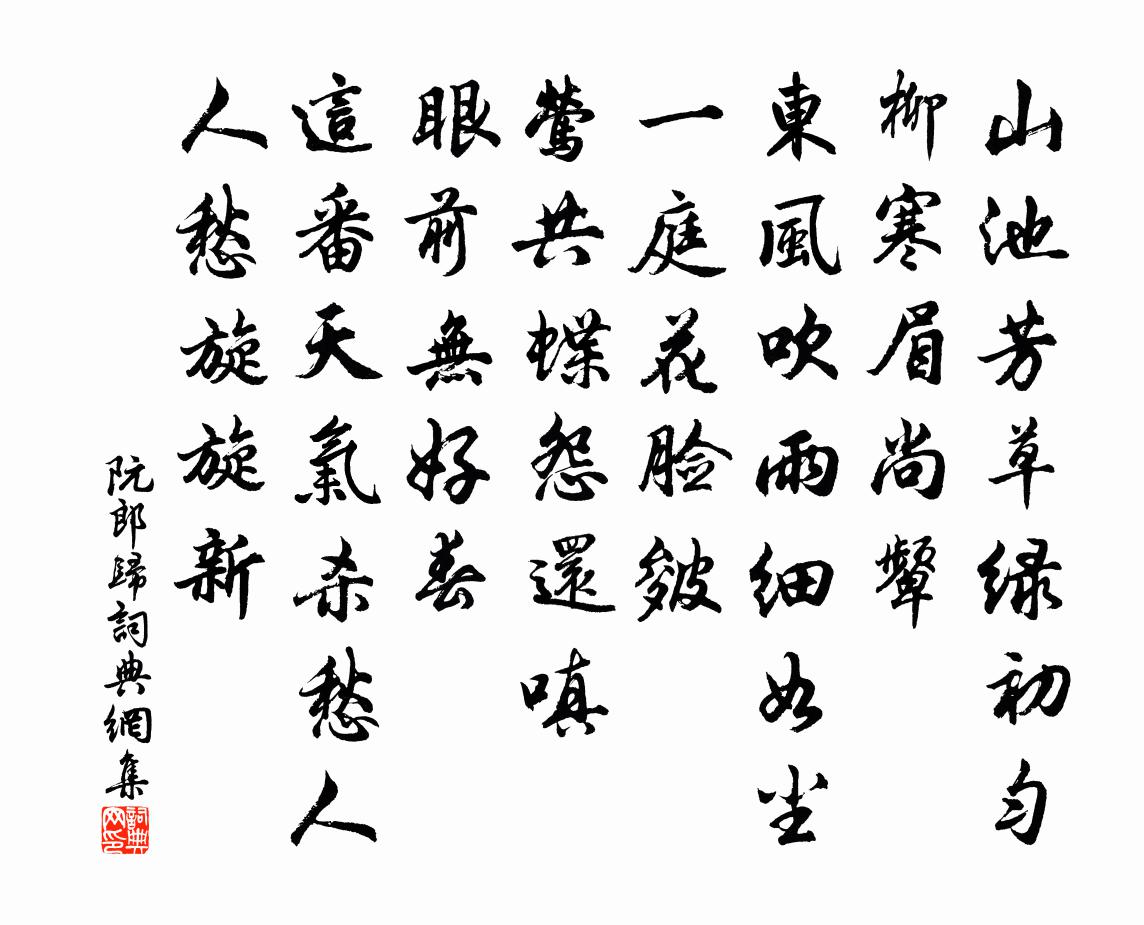 山池芳草绿初匀
柳寒眉尚颦
東風吹雨細如尘
一庭花脸皴
鶯共蝶怨還嗔
眼前無好春
這番天氣杀愁人
人愁旋旋新
阮郎歸詞典網集
詞典网印